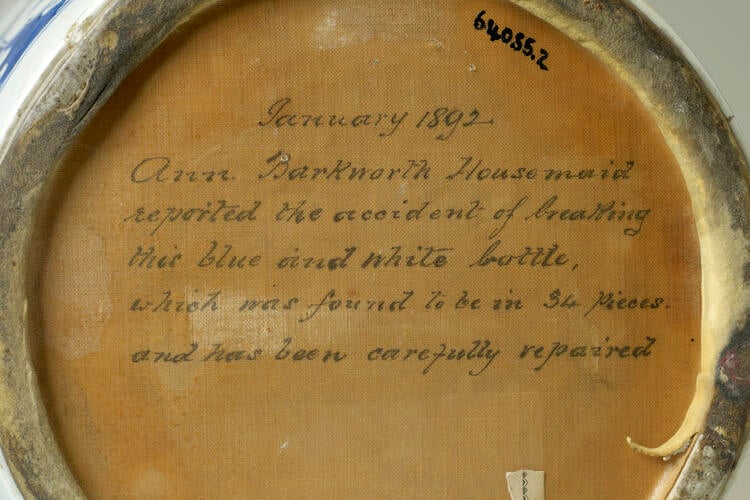 64055.2
January 1892
Ann. Barkworth Housemaid
reported the accident of breaking
this blue and white bottle,
which was found to be in 34 pieces.
and has been carefully repaired